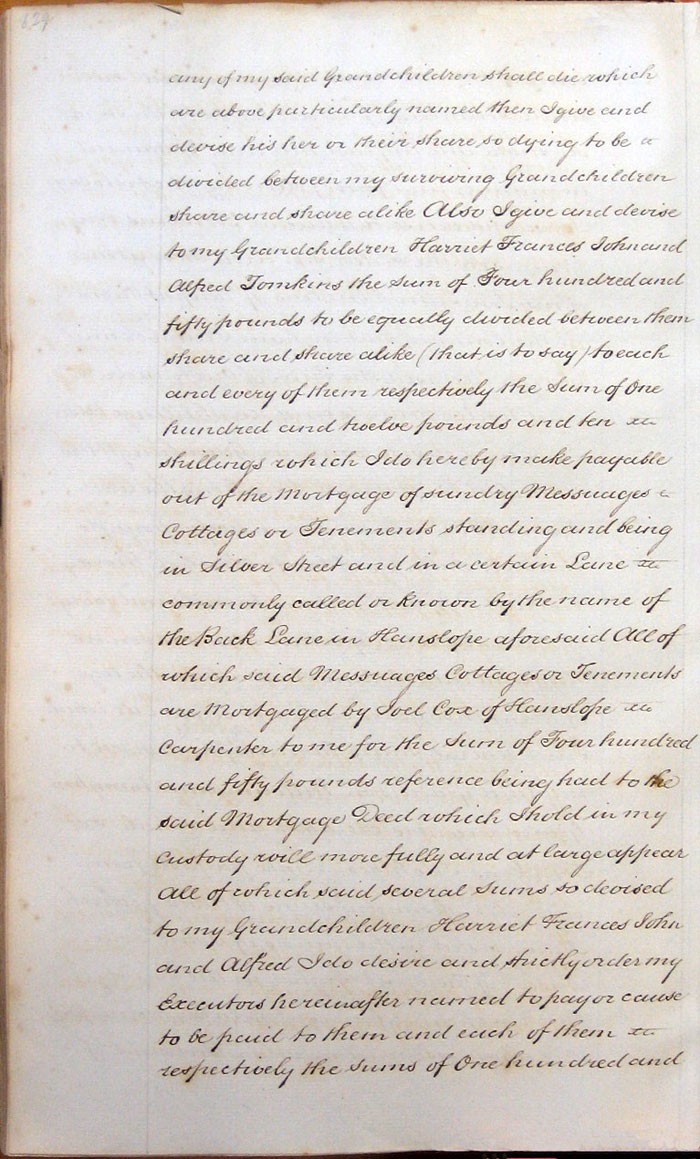 624
any of my said Grandchildren shall die which
are above particularly named then I give and
devise his her or their share so dying to be
divided between my surviving Grandchildren
share and share alike Also I give and devise
to my Grandchildren Harriet Frances John and
Alfred Tomkins the Sum of Four hundred and
fifty pounds to be equally divided between them
share and share alike (that is to say) to each
and every of them respectively the Sum of One
hundred and twelve pounds and ten
shillings which I do hereby make payable
out of the Mortgage of sundry Messuages
Cottages or Tenements standing and being
in Silver Street and in a certain Lane
commonly called or known by the name of
the Back Lane in Hanslope aforesaid All of
which said Messuages Cottages or Tenements
are Mortgaged by Joel Cox of Hanslope
Carpenter to me for the Sum of Four hundred
and fifty pounds reference being had to the
said Mortgage Deed which I hold in my
custody will more fully and at large appear
All of which said several Sums so devised
to my Grandchildren Harriet Frances John
and Alfred I do desire and strictly order my
Executors hereinafter named to pay or cause
to be paid to them and each of them
respectively the Sums of One hundred and